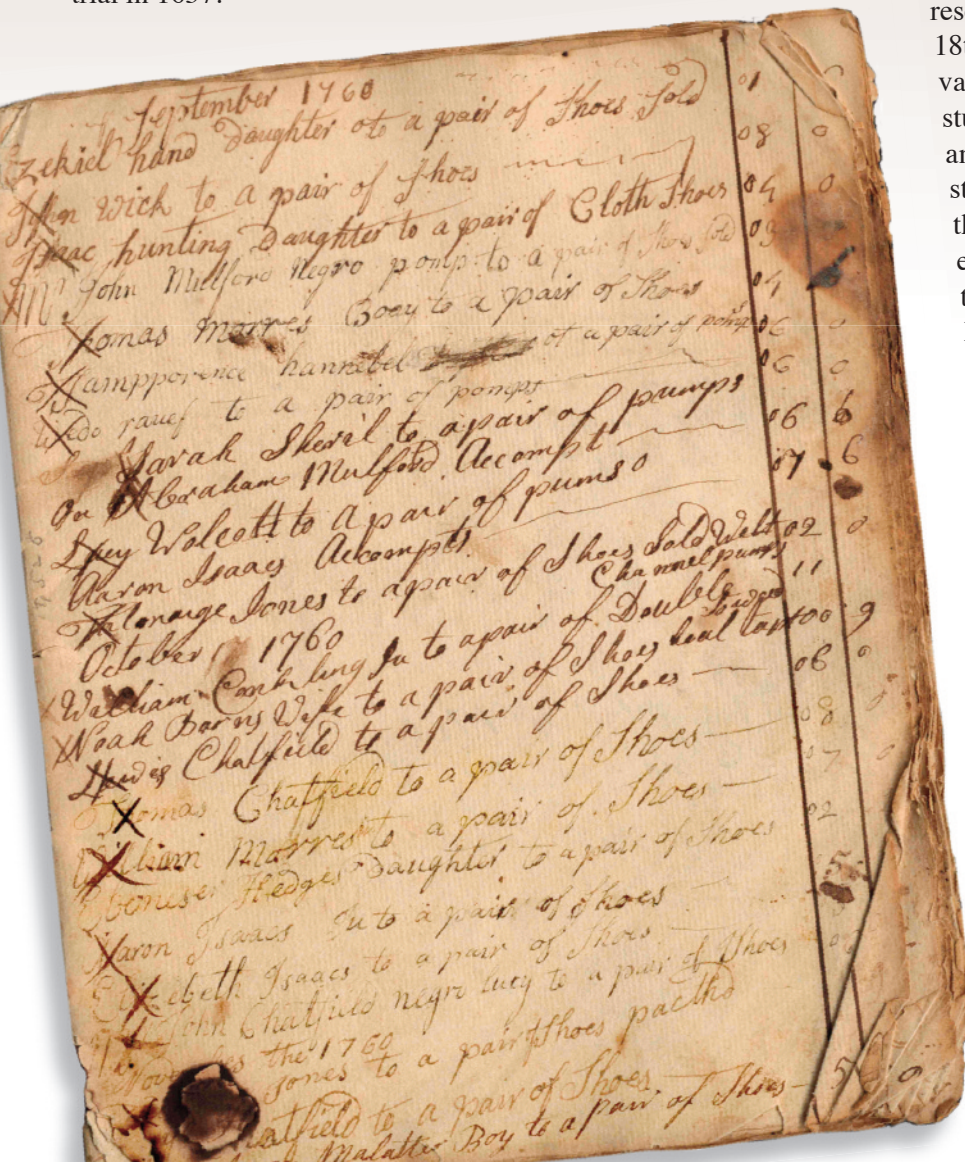 trial in 1657.
September 1760
Ezekiel hand Daughter to a pair of Shoes Sold 01
John Wick to a pair of Shoes 08 0
Isaac hunting Daughter to a pair of Cloth Shoes 04 0
Mr John Mulford Negro pomp to a pair of Shoes Sold 03
Thomas Marres Booy to a pair of Shoes 04
hannebel ot a pair of pomps 06 0
to a pair of pomps 06 0
Sarah Sheril to a pair of pumps 06 6
On Abraham Mulford Accompt 07 6
Wolcott to a pair of pums
Aaron Isaacs Accompt
Jones to a pair of Shoes Sold Welt 02 0
Channel pumps
October 1760 11
William Conkling Ju to a pair of Double
Noah Barns Wife to a pair of Shoes heal 00 9
Lewis Chatfield to a pair of Shoes 06 0
Thomas Chatfield to a pair of Shoes 08
William Marres to a pair of Shoes 07 0
Ebeneser Hedges Daughter to a pair of Shoes 02
Aaron Isaacs Ju to a pair of Shoes
Elizebeth Isaacs to a pair of Shoes
John Chatfield negro lucy to a pair of Shoes
the 1760
Jones to a pair Shoes
to a pair of Shoes
Malatter Boy to a pair of Shoes 5 0
18
va